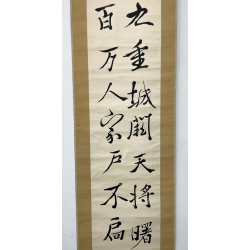 九重城闕天將曙
百万人家戸不扃